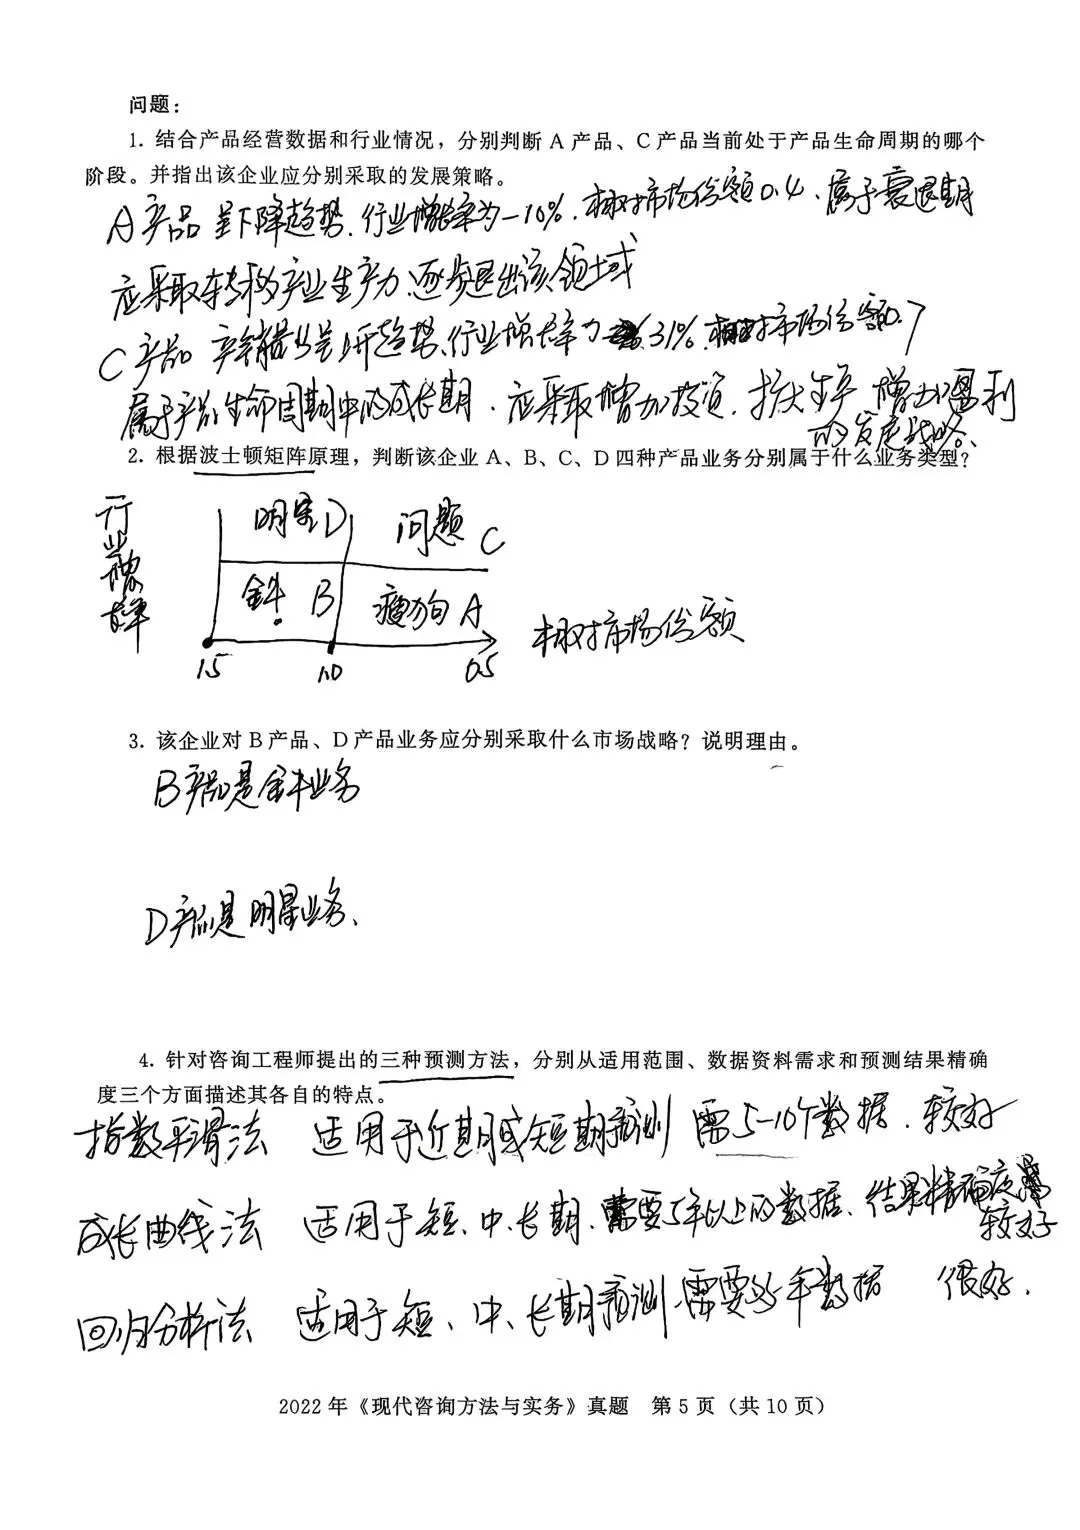 问题：
1. 结合产品经营数据和行业情况，分别判断 A 产品、C 产品当前处于产品生命周期的哪个
阶段。并指出该企业应分别采取的发展策略。
A产品 呈下降趋势、行业增长率为-10%、相对市场份额0.4、属于衰退期
应采取转移产业生产力、逐步退出该领域
C产品 产销量为呈上升趋势、行业增长率为31%、相对市场份额0.7
属于产品生命周期中的成长期、应采取增加投资、扩大生产 增加盈利
的发展战略、
2. 根据波士顿矩阵原理，判断该企业 A、B、C、D 四种产品业务分别属于什么业务类型？
行业增长率
明星 D 问题 C
金牛 B 瘦狗 A
相对市场份额
1.5 1.0 0.5
3. 该企业对 B 产品、D 产品业务应分别采取什么市场战略？说明理由。
B产品是金牛业务
D产品是明星业务、
4. 针对咨询工程师提出的三种预测方法，分别从适用范围、数据资料需求和预测结果精确
度三个方面描述其各自的特点。
指数平滑法 适用于近期或短期预测 需5-10个数据、较好
成长曲线法 适用于短、中、长期、需要5年以上的数据、结果精确度
较好
回归分析法 适用于短、中、长期预测、需要 年数据 很好.
2022 年《现代咨询方法与实务》真题 第 5 页（共 10 页）